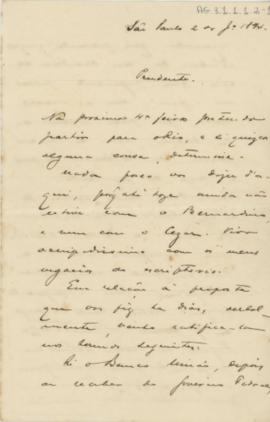 AG.3.1.1.1.2-1
São Paulo 2 de Jº 1894.
Prudente.
Na proxima 4ª feira pretendo
partir para o Rio, e si quizer
alguma cousa, determine.
Nada posso vos dizer d'a
qui, pois até hoje ainda não
estive com o Bernardino,
e nem com o Cezar. Vivo
occupadissimo com os meus
negocios do escriptorio.
Em relação á proposta
que vos fiz ha dias, verbal
mente, venho ratifical-a
nos termos seguintes:
Si o Banco União, depois
de receber do Governo Federal